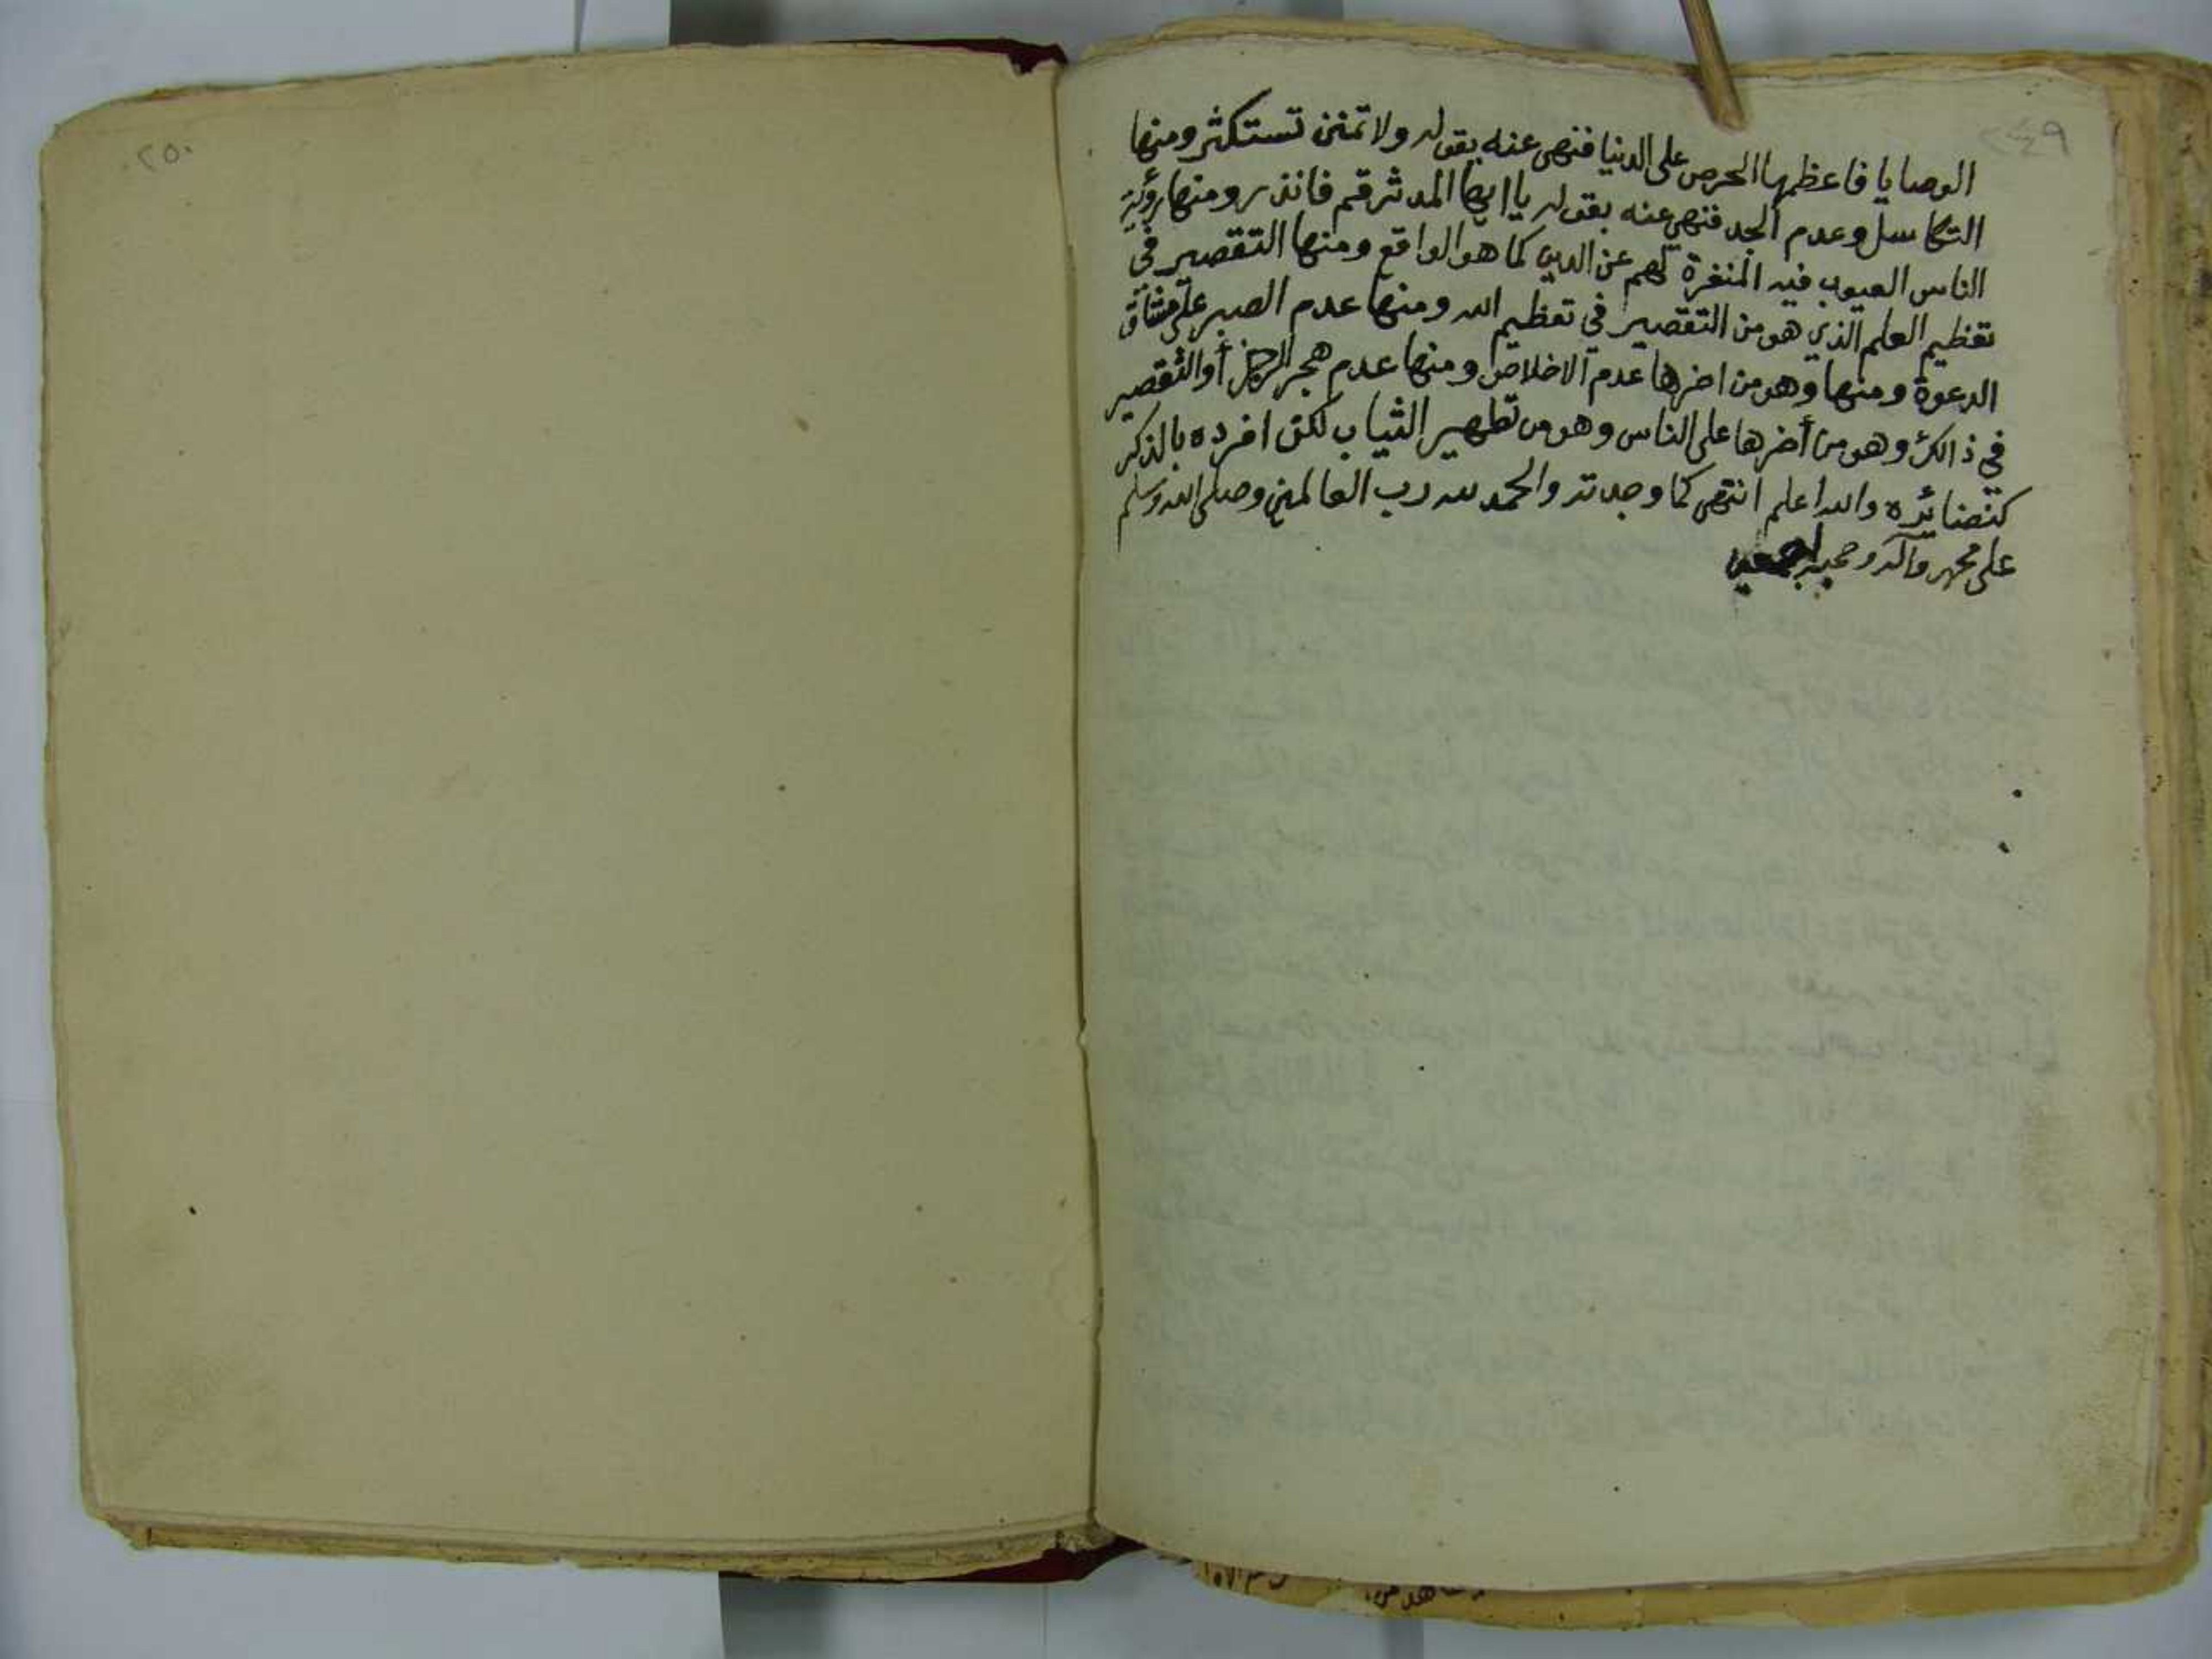 ٢٤٩
الوصايا فاعظمها الحرص على الدنيا فنهى عنه بقوله ولا تمنن تستكثر ومنها
التكاسل وعدم الجد فنهى عنه بقوله يا ايها المدثر قم فانذر ومنها رؤية
الناس العيوب فيه المنفرة لهم عن الدين كما هو الواقع ومنها التقصير في
تعظيم العلم الذي هو من التقصير في تعظيم الله ومنها عدم الصبر على مشاق
الدعوة ومنها وهو من اضرها عدم الاخلاص ومنها عدم هجر الرجز أو التقصير
في ذالك وهو من أضرها على الناس وهو من تطهير الثياب لكن افرده بالذكر
كنضائره والله اعلم انتهى كما وجدته والحمد لله رب العالمين وصلى الله وسلم
على محمد وآله وصحبه اجمعين
٢٥٠